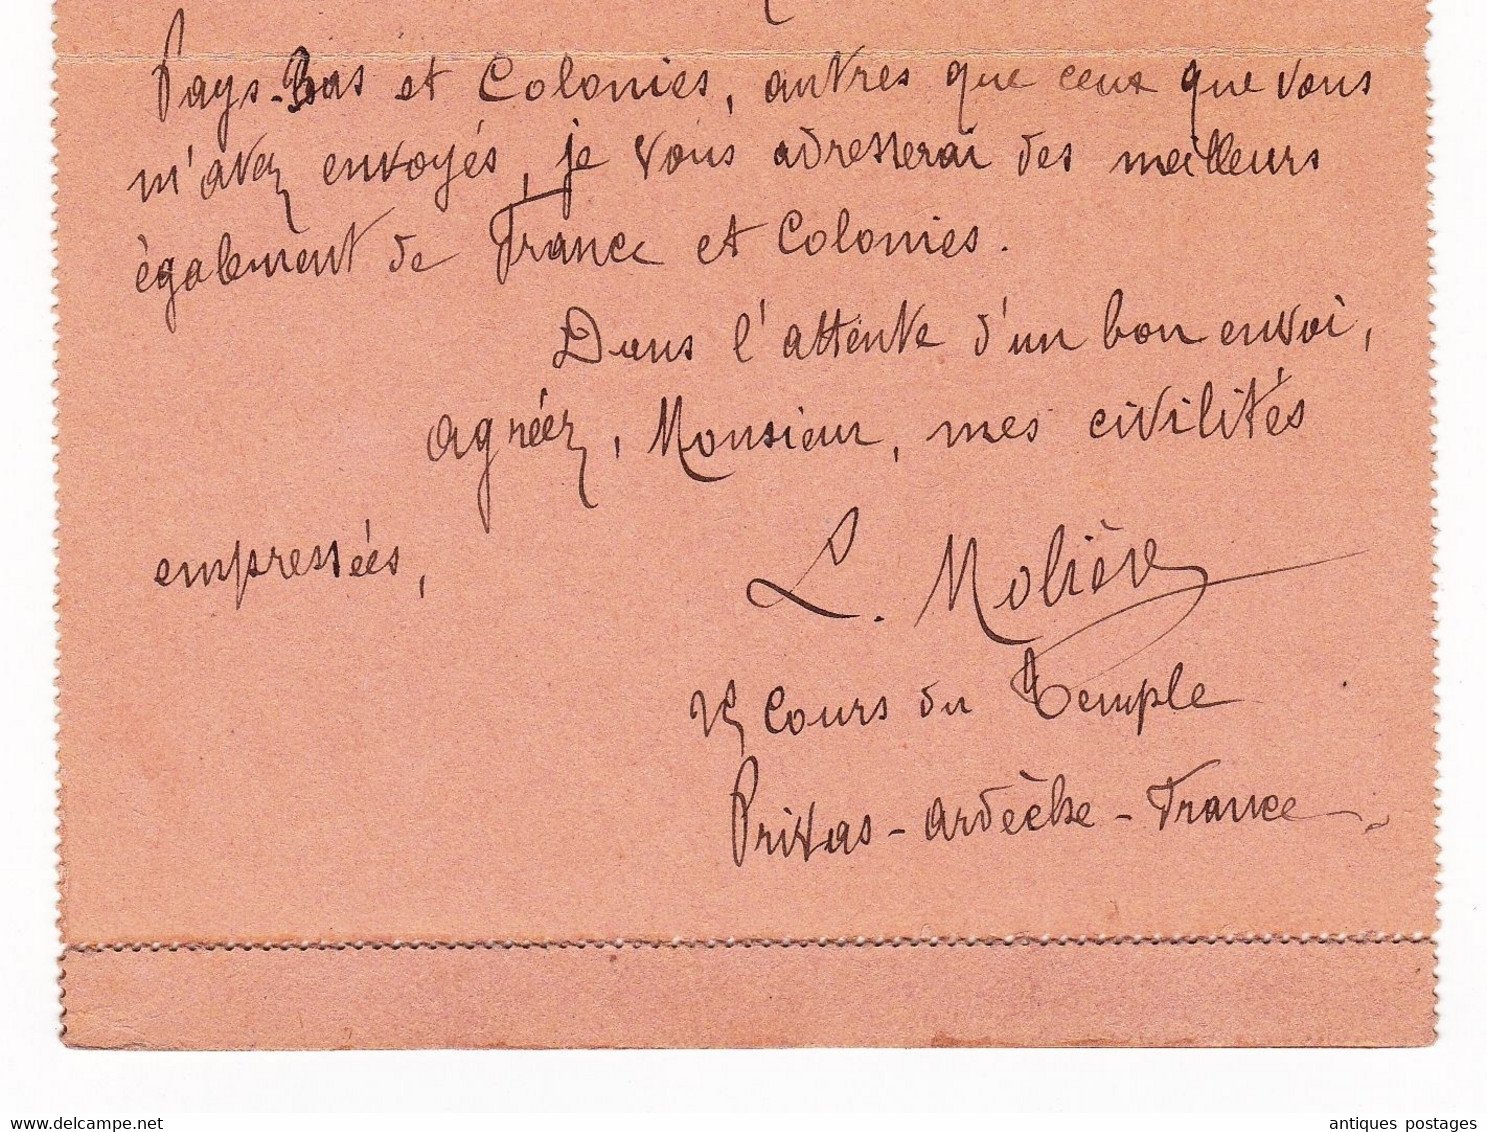 Pays-Bas et Colonies, autres que ceux que vous
m'avez envoyés, je vous adresserai des meilleurs
également de France et Colonies.
Dans l'attente d'un bon envoi,
agréez, Monsieur, mes civilités
empressées,
L. Molière
Cours du Temple
Privas - Ardèche - France
www.delcampe.net
antiques postages